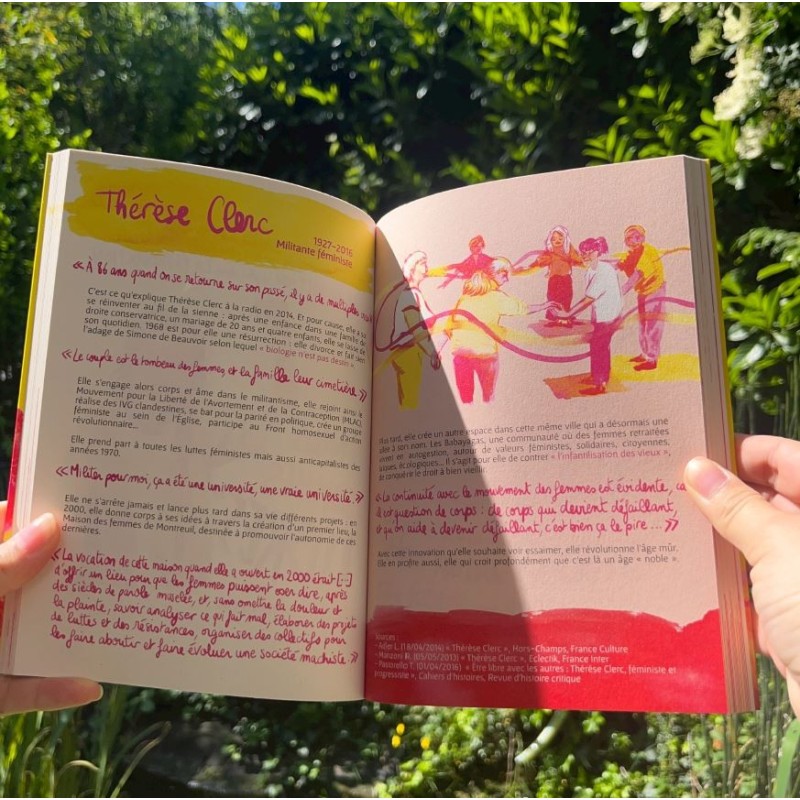 Thérèse Clerc
1927-2016
Militante féministe
« À 86 ans quand on se retourne sur son passé, il y a de multiples vies
C'est ce qu'explique Thérèse Clerc à la radio en 2014. Et pour cause, elle a su
se réinventer au fil de la sienne : après une enfance dans une famille de
droite conservatrice, un mariage de 20 ans et quatre enfants, elle se lasse de
son quotidien. 1968 est pour elle une résurrection : elle divorce et fait sien
l'adage de Simone de Beauvoir selon lequel « biologie n'est pas destin ».
« Le couple est le tombeau des femmes et la famille leur cimetière »
Elle s'engage alors corps et âme dans le militantisme, elle rejoint ainsi le
Mouvement pour la Liberté de l'Avortement et de la Contraception (MLAC),
réalise des IVG clandestines, se bat pour la parité en politique, crée un groupe
féministe au sein de l'Eglise, participe au Front homosexuel d'action
révolutionnaire...
Elle prend part à toutes les luttes féministes mais aussi anticapitalistes des
années 1970.
« Militer pour moi, ça a été une université, une vraie université. »
Elle ne s'arrête jamais et lance plus tard dans sa vie différents projets : en
2000, elle donne corps à ses idées à travers la création d'un premier lieu, la
Maison des femmes de Montreuil, destinée à promouvoir l'autonomie de ces
dernières.
« La vocation de cette maison quand elle a ouvert en 2000 était [...]
d'offrir un lieu pour que les femmes puissent oser dire, après
des siècles de parole muselée, et, sans omettre la douleur et
la plainte, savoir analyser ce qui fait mal, élaborer des projets
de luttes et des résistances, organiser des collectifs pour
les faire aboutir et faire évoluer une société machiste »
Plus tard, elle crée un autre espace dans cette même ville qui a désormais une
allée à son nom. Les Babayagas, une communauté où des femmes retraitées
vivent en autogestion, autour de valeurs féministes, solidaires, citoyennes,
laïques, écologiques... Il s'agit pour elle de contrer « l'infantilisation des vieux »,
de conquérir le droit à bien vieillir.
« La continuité avec le mouvement des femmes est évidente, ça
question de corps : de corps qui devient défaillant,
et qu'on aide à devenir défaillant, c'est bien ça le pire ... »
Avec cette innovation qu'elle souhaite voir essaimer, elle révolutionne l'âge mûr.
Elle en profite aussi, elle qui croit profondément que c'est là un âge « noble ».
Sources :
- Adler L. (18/04/2014) « Thérèse Clerc », Hors-Champs, France Culture
- Manzoni R. (03/05/2013) « Thérèse Clerc », Eclectik, France Inter
- Passorello T. (01/04/2016) « Être libre avec les autres : Thérèse Clerc, féministe et
progressive », Cahiers d'histoires, Revue d'histoire critique